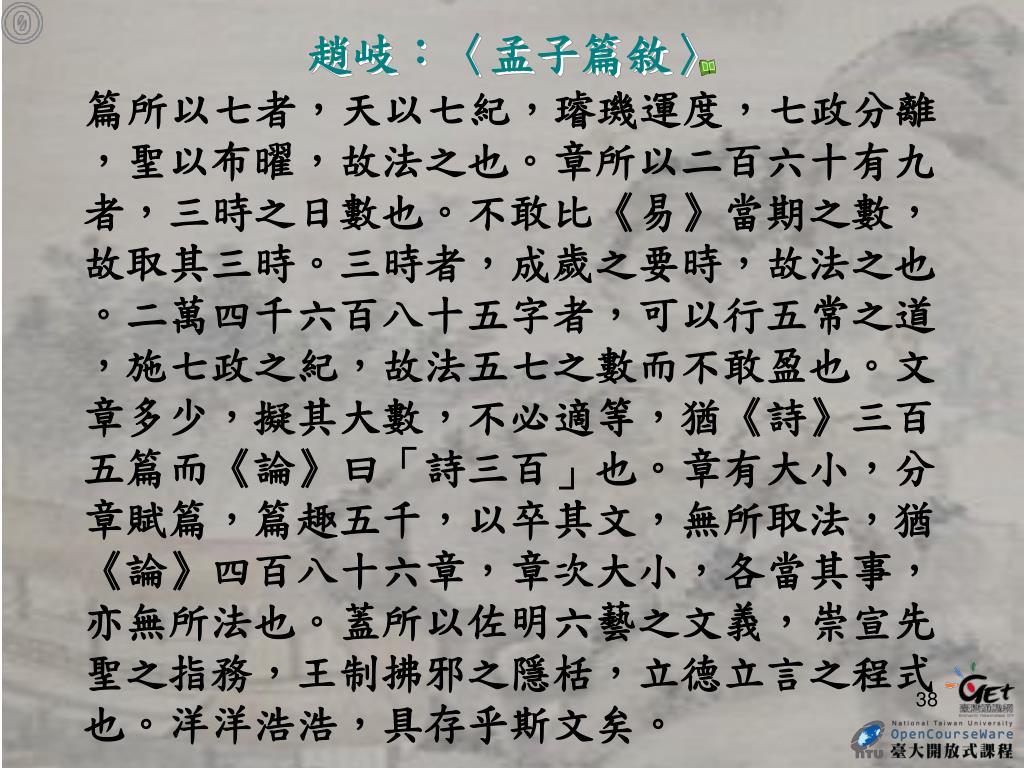 趙岐：〈孟子篇敘〉
篇所以七者，天以七紀，璿璣運度，七政分離
，聖以布曜，故法之也。章所以二百六十有九
者，三時之日數也。不敢比《易》當期之數，
故取其三時。三時者，成歲之要時，故法之也
。二萬四千六百八十五字者，可以行五常之道
，施七政之紀，故法五七之數而不敢盈也。文
章多少，擬其大數，不必適等，猶《詩》三百
五篇而《論》曰「詩三百」也。章有大小，分
章賦篇，篇趣五千，以卒其文，無所取法，猶
《論》四百八十六章，章次大小，各當其事，
亦無所法也。蓋所以佐明六藝之文義，崇宣先
聖之指務，王制拂邪之隱栝，立德立言之程式
也。洋洋浩浩，具存乎斯文矣。
38
GEt
National Taiwan University
OpenCourseWare
NTU 臺大開放式課程